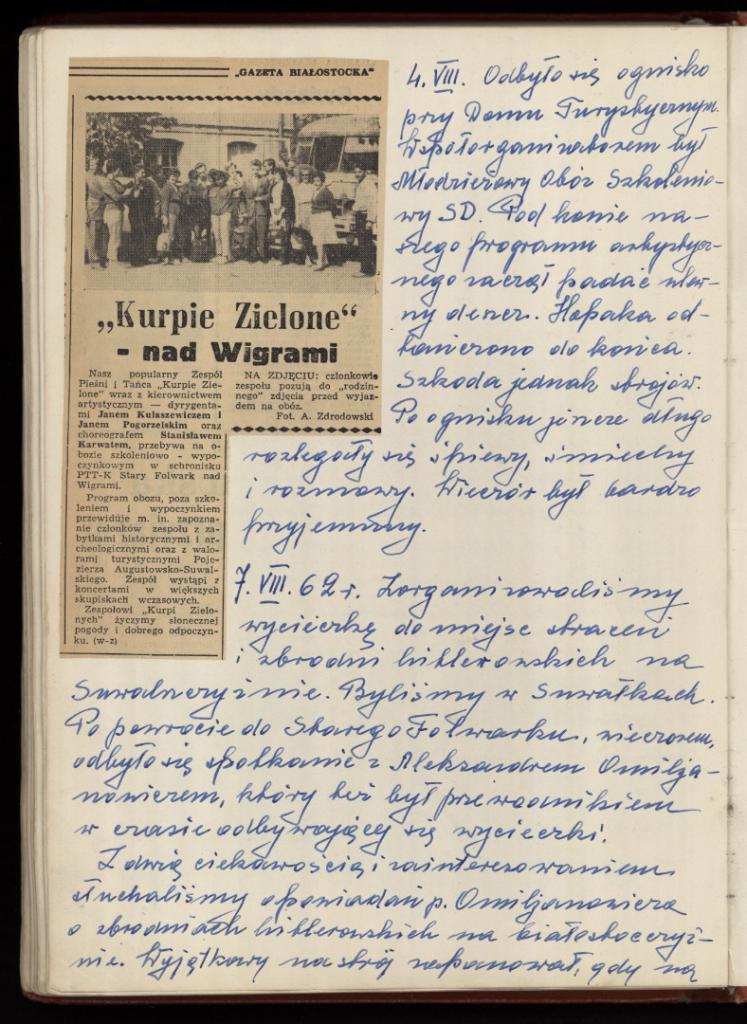 „GAZETA BIAŁOSTOCKA"
„Kurpie Zielone"
- nad Wigrami
Nasz popularny Zespół
Pieśni i Tańca „Kurpie Zie-
lone" wraz z kierownictwem
artystycznym — dyrygenta-
mi Janem Kulaszewiczem i
Janem Pogorzelskim oraz
choreografem Stanisławem
Karwatem, przebywa na o-
bozie szkoleniowo - wypo-
czynkowym w schronisku
PTT-K Stary Folwark nad
Wigrami.
Program obozu, poza szko-
leniem i wypoczynkiem
przewiduje m. in. zapozna-
nie członków zespołu z za-
bytkami historycznymi i ar-
cheologicznymi oraz z walo-
rami turystycznymi Poje-
zierza Augustowsko-Suwal-
skiego. Zespół wystąpi z
koncertami w większych
skupiskach wczasowych.
Zespołowi „Kurpi Zielo-
nych" życzymy słonecznej
pogody i dobrego odpoczyn-
ku. (w-z)
NA ZDJĘCIU: członkowie
zespołu pozują do „rodzin-
nego" zdjęcia przed wyjaz-
dem na obóz.
Fot. A. Zdrodowski
4. VIII. Odbyło się ognisko
przy Domu Turystycznym.
Współorganizatorem był
Młodzieżowy Obóz Szkolenio-
wy SD. Pod konie na-
szego programu artystycz-
nego zaczął padać ulew-
ny deszcz. Hopaka od-
tańczono do końca.
Szkoda jednak strojów.
Po ognisku jeszcze długo
rozlegały się śpiewy, śmiechy
i rozmowy. Wieczór był bardzo
przyjemny.
7. VIII. 62 r. Zorganizowaliśmy
wycieczkę do miejsc straceń
i zbrodni hitlerowskich na
Suwalszczyźnie. Byliśmy w Suwałkach.
Po powrocie do Starego Folwarku, wieczorem,
odbyło się spotkanie z Aleksandrem Omilja-
nowiczem, który też był przewodnikiem
w czasie odbywającej się wycieczki.
Z dużą ciekawością i zainteresowaniem
słuchaliśmy opowiadań p. Omiljanowicza
o zbrodniach hitlerowskich na białostocczyź-
nie. Wyjątkowy nastrój zapanował, gdy na